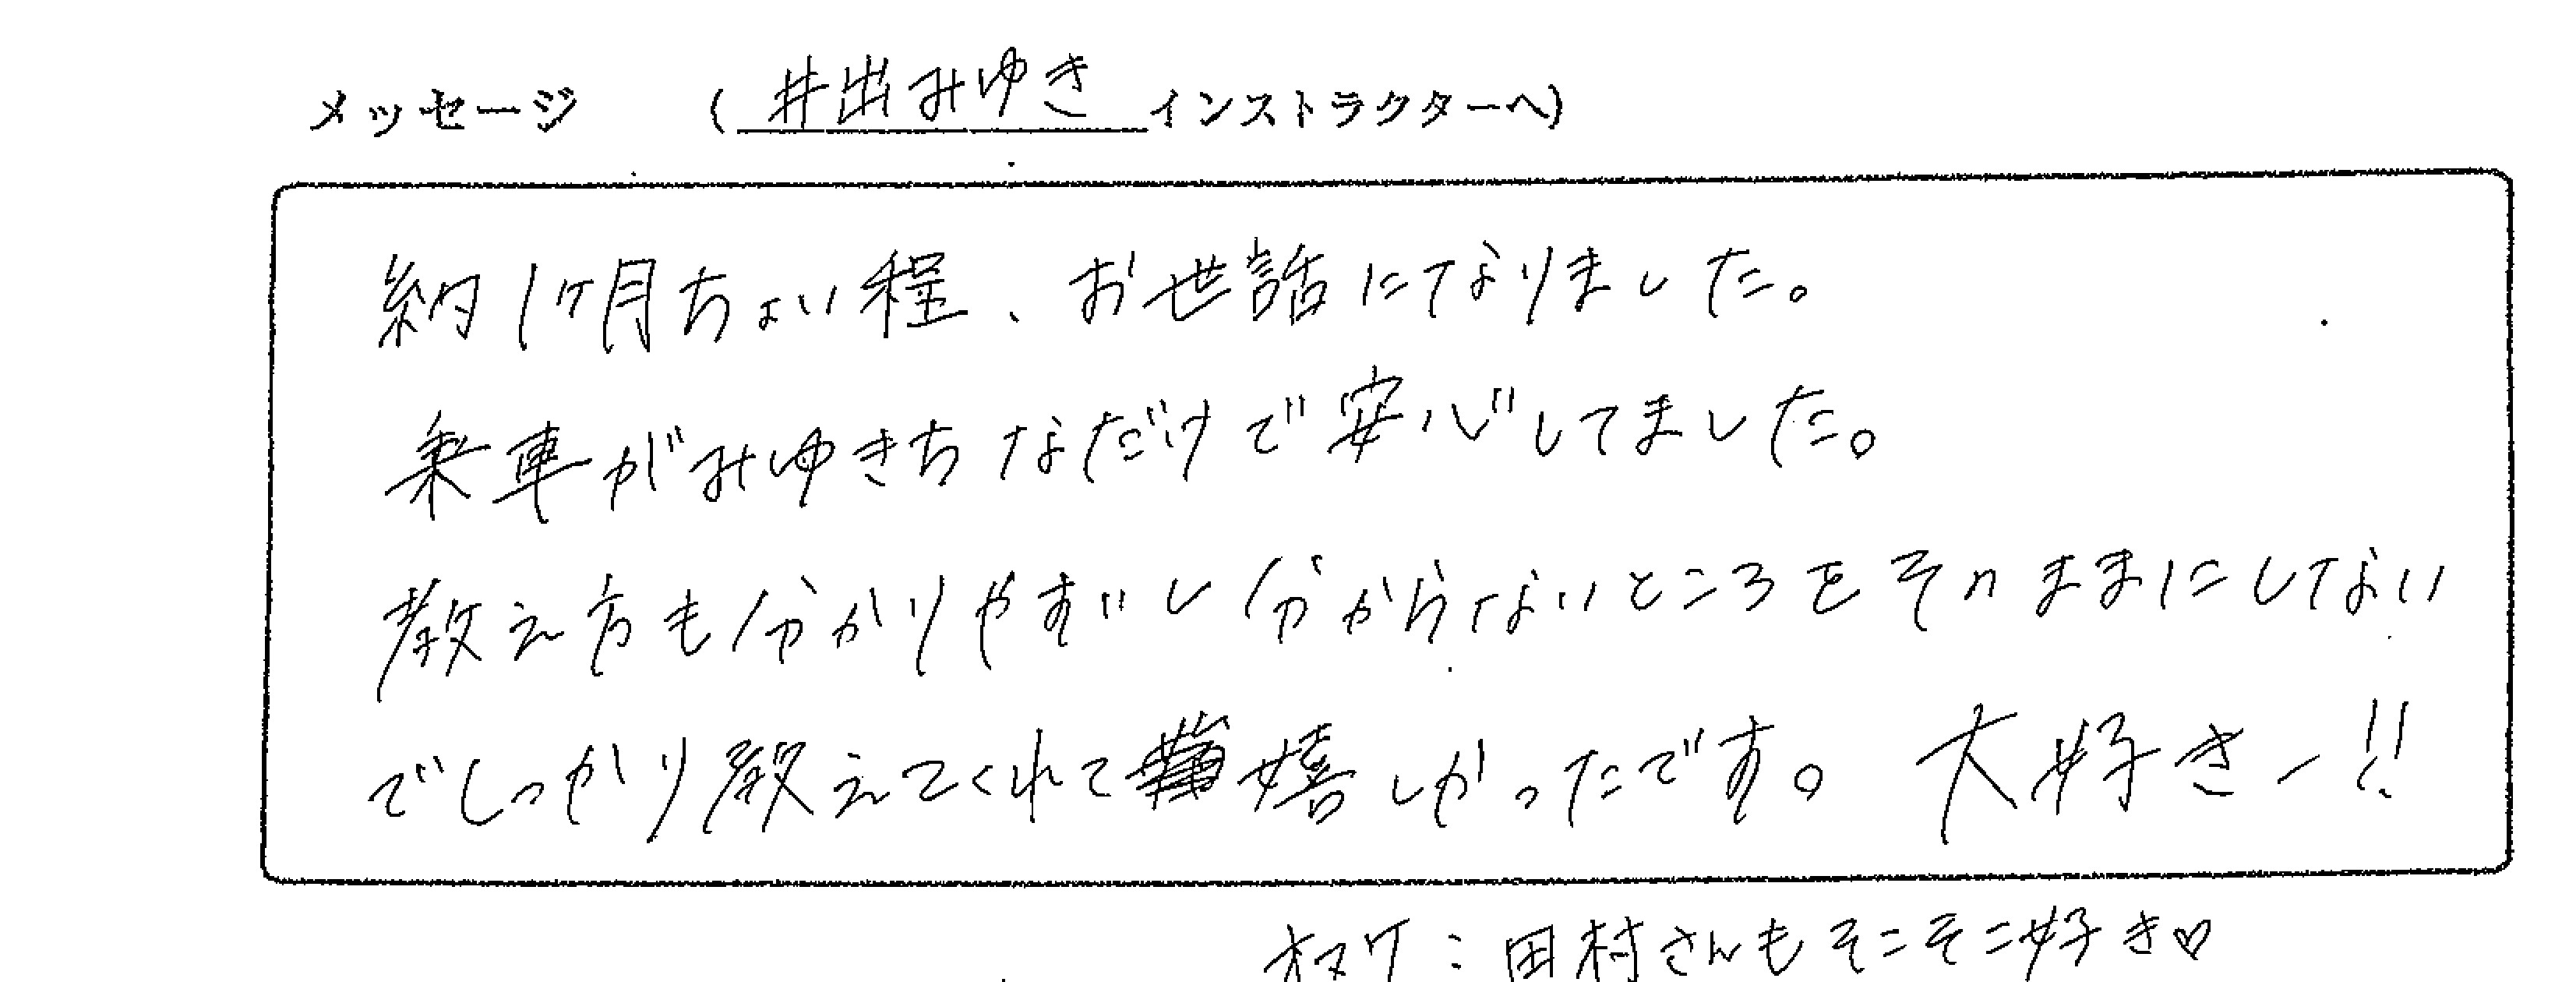 メッセージ (井出みゆきインストラクターへ)
納1ヶ月ちょい程、お世話になりました。
乗車がみゆきちなだけで安心してました。
教え方も分かりやすいし分からないところをそのままにしてない
でしっかり教えてくれて嬉しかったです。大好きー!!
オマケ:田村さんもそこそこ好き♡